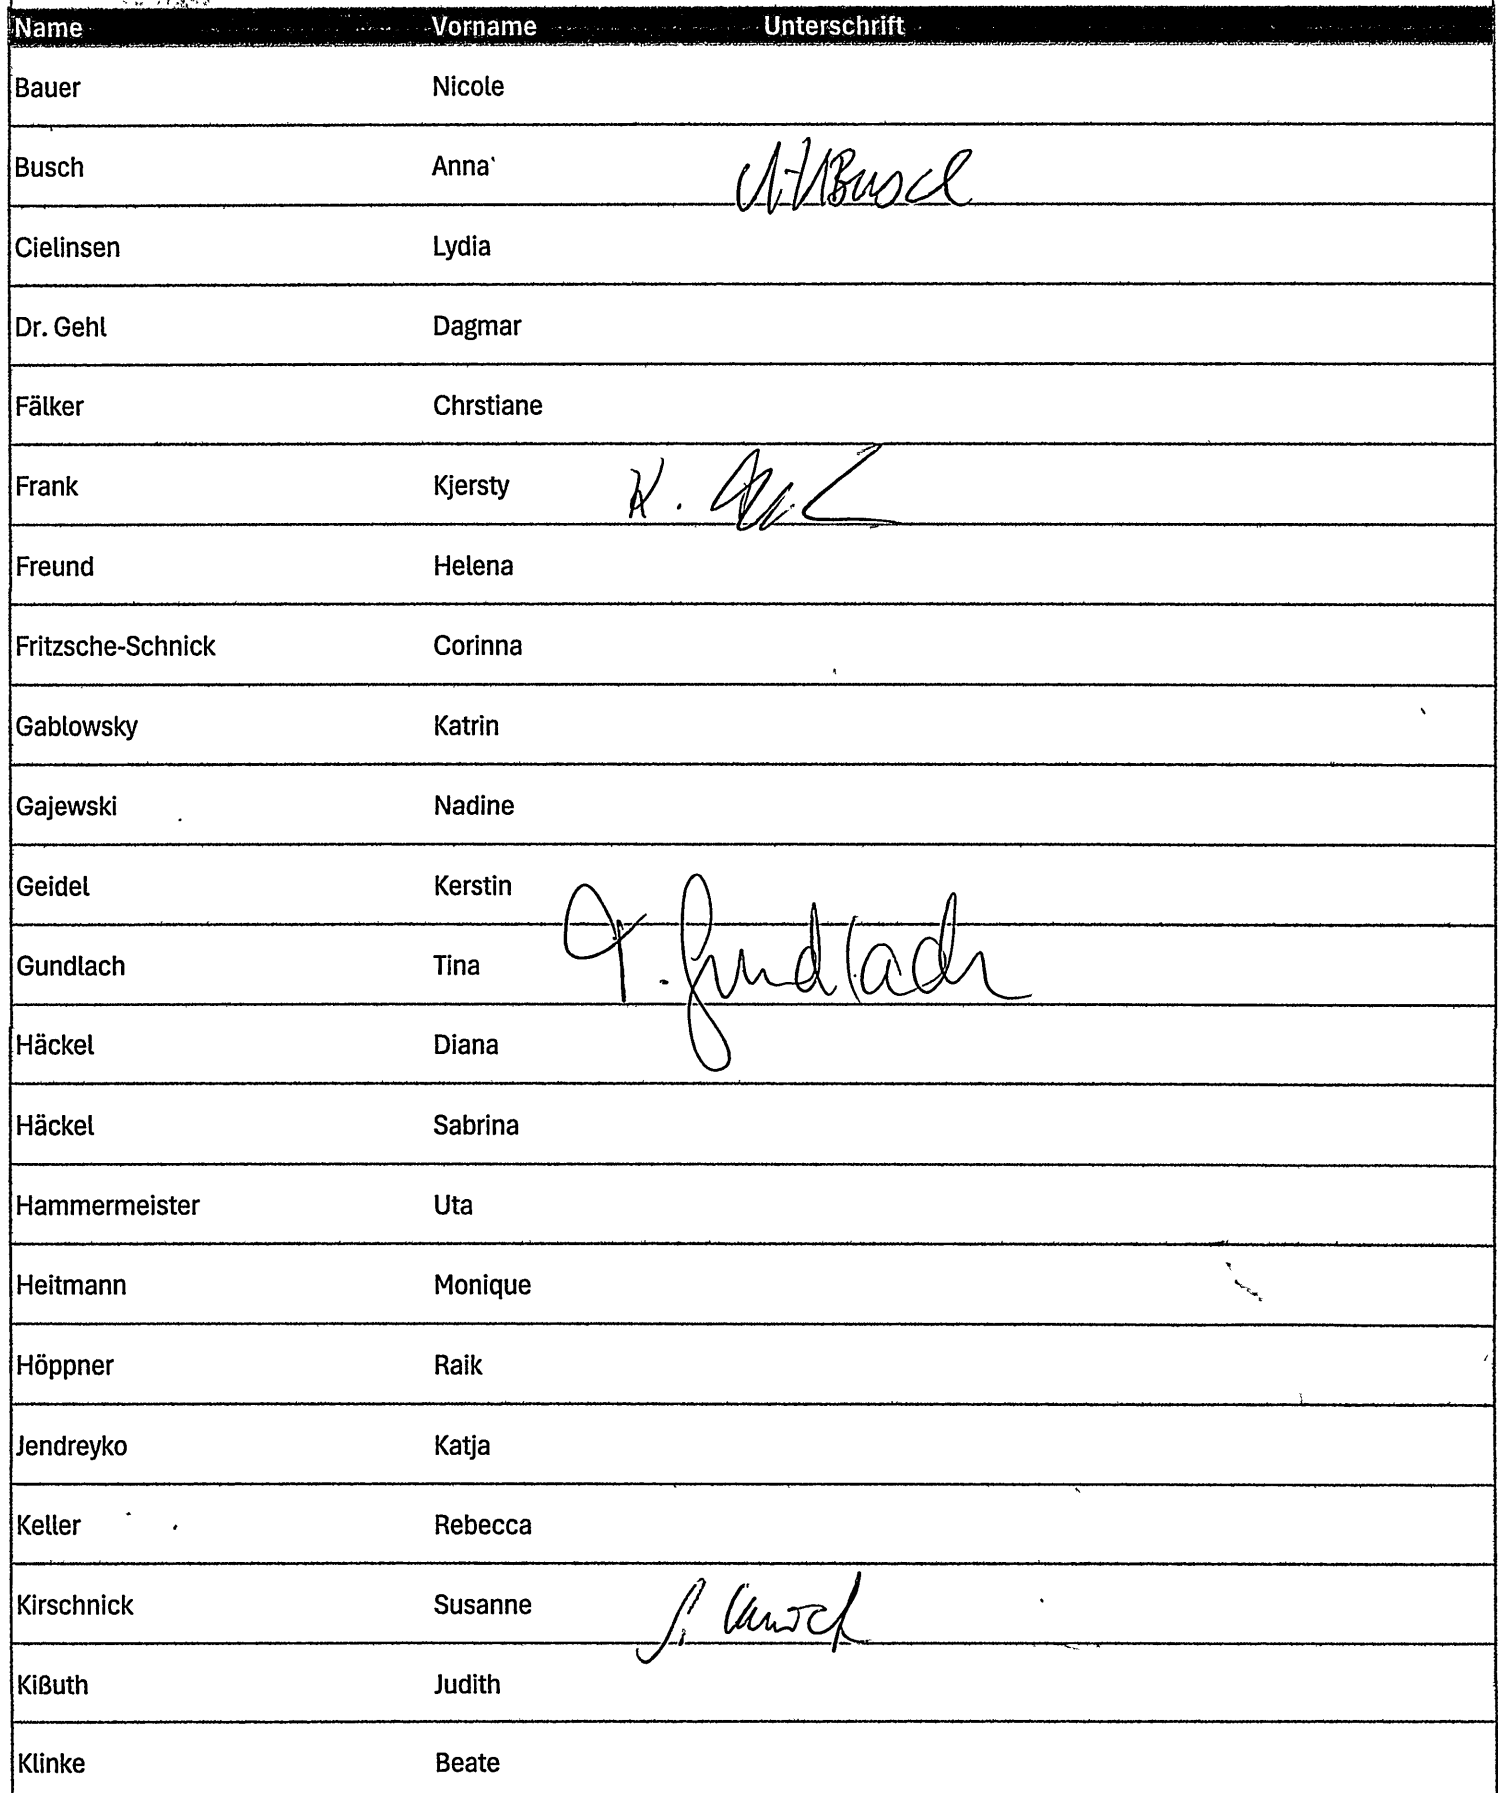 Name Vorname Unterschrift
Bauer Nicole
Busch Anna A.-KBusch
Cielinsen Lydia
Dr. Gehl Dagmar
Fälker Chrstiane
Frank Kjersty K.
Freund Helena
Fritzsche-Schnick Corinna
Gablowsky Katrin
Gajewski Nadine
Geidel Kerstin
Gundlach Tina T. Gundlach
Häckel Diana
Häckel Sabrina
Hammermeister Uta
Heitmann Monique
Höppner Raik
Jendreyko Katja
Keller Rebecca
Kirschnick Susanne S.
Kißuth Judith
Klinke Beate